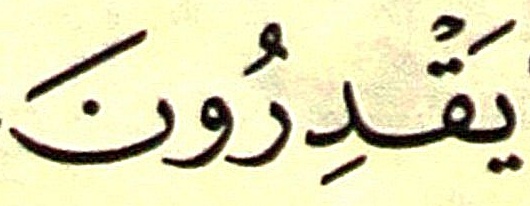 يَقْدِرُونَ